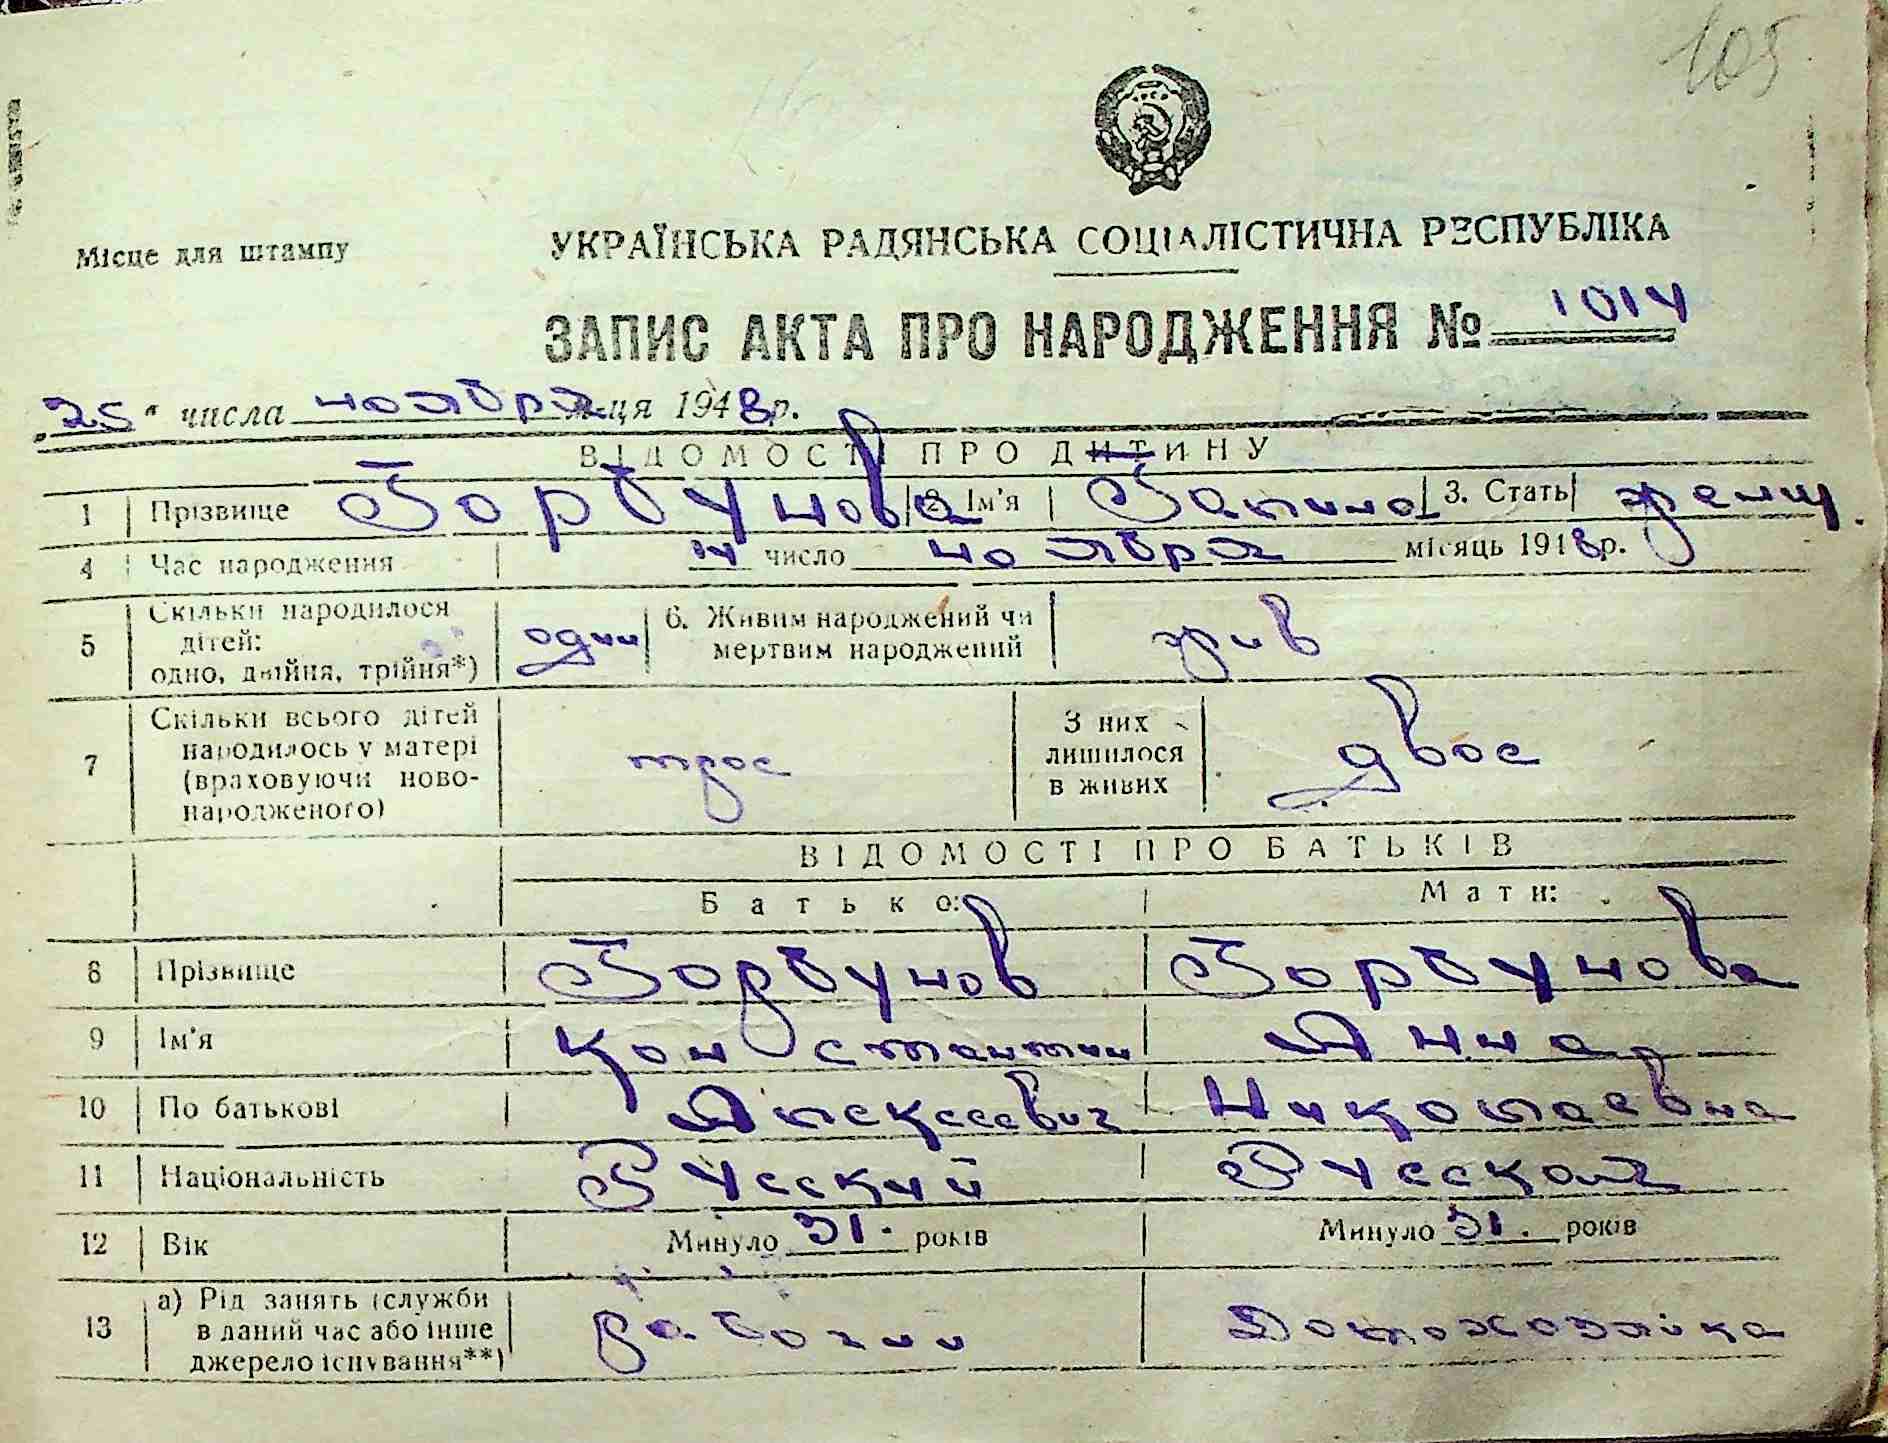 105
Місце для штампу
УКРАЇНСЬКА РАДЯНСЬКА СОЦІАЛІСТИЧНА РЕСПУБЛІКА
ЗАПИС АКТА ПРО НАРОДЖЕННЯ № 1014
„25“ числа ноября м-ця 1948 р.
ВІДОМОСТІ ПРО ДИТИНУ
1 Прізвище Горбунова 2. Ім'я Галина 3. Стать женщ.
4 Час народження 14 число ноября місяць 1948 р.
5 Скільки народилося дітей: одно, двійня, трійня*) один 6. Живим народжений чи мертвим народжений жив
7 Скільки всього дітей народилось у матері (враховуючи ново-народженого) трое З них лишилося в живих двое
ВІДОМОСТІ ПРО БАТЬКІВ
Батько: Мати:
8 Прізвище Горбунов Горбунова
9 Ім'я Константин Анна
10 По батькові Алексеевич Николаевна
11 Національність Русский Русская
12 Вік Минуло 31. років Минуло 31. років
13 а) Рід занять (служби в даний час або інше джерело існування**) рабочий Домохозяйка